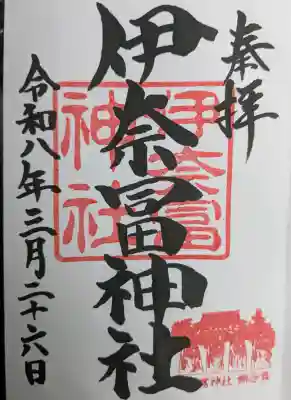 奉拝
伊奈冨神社
伊奈冨
神社
令和八年三月二十六日